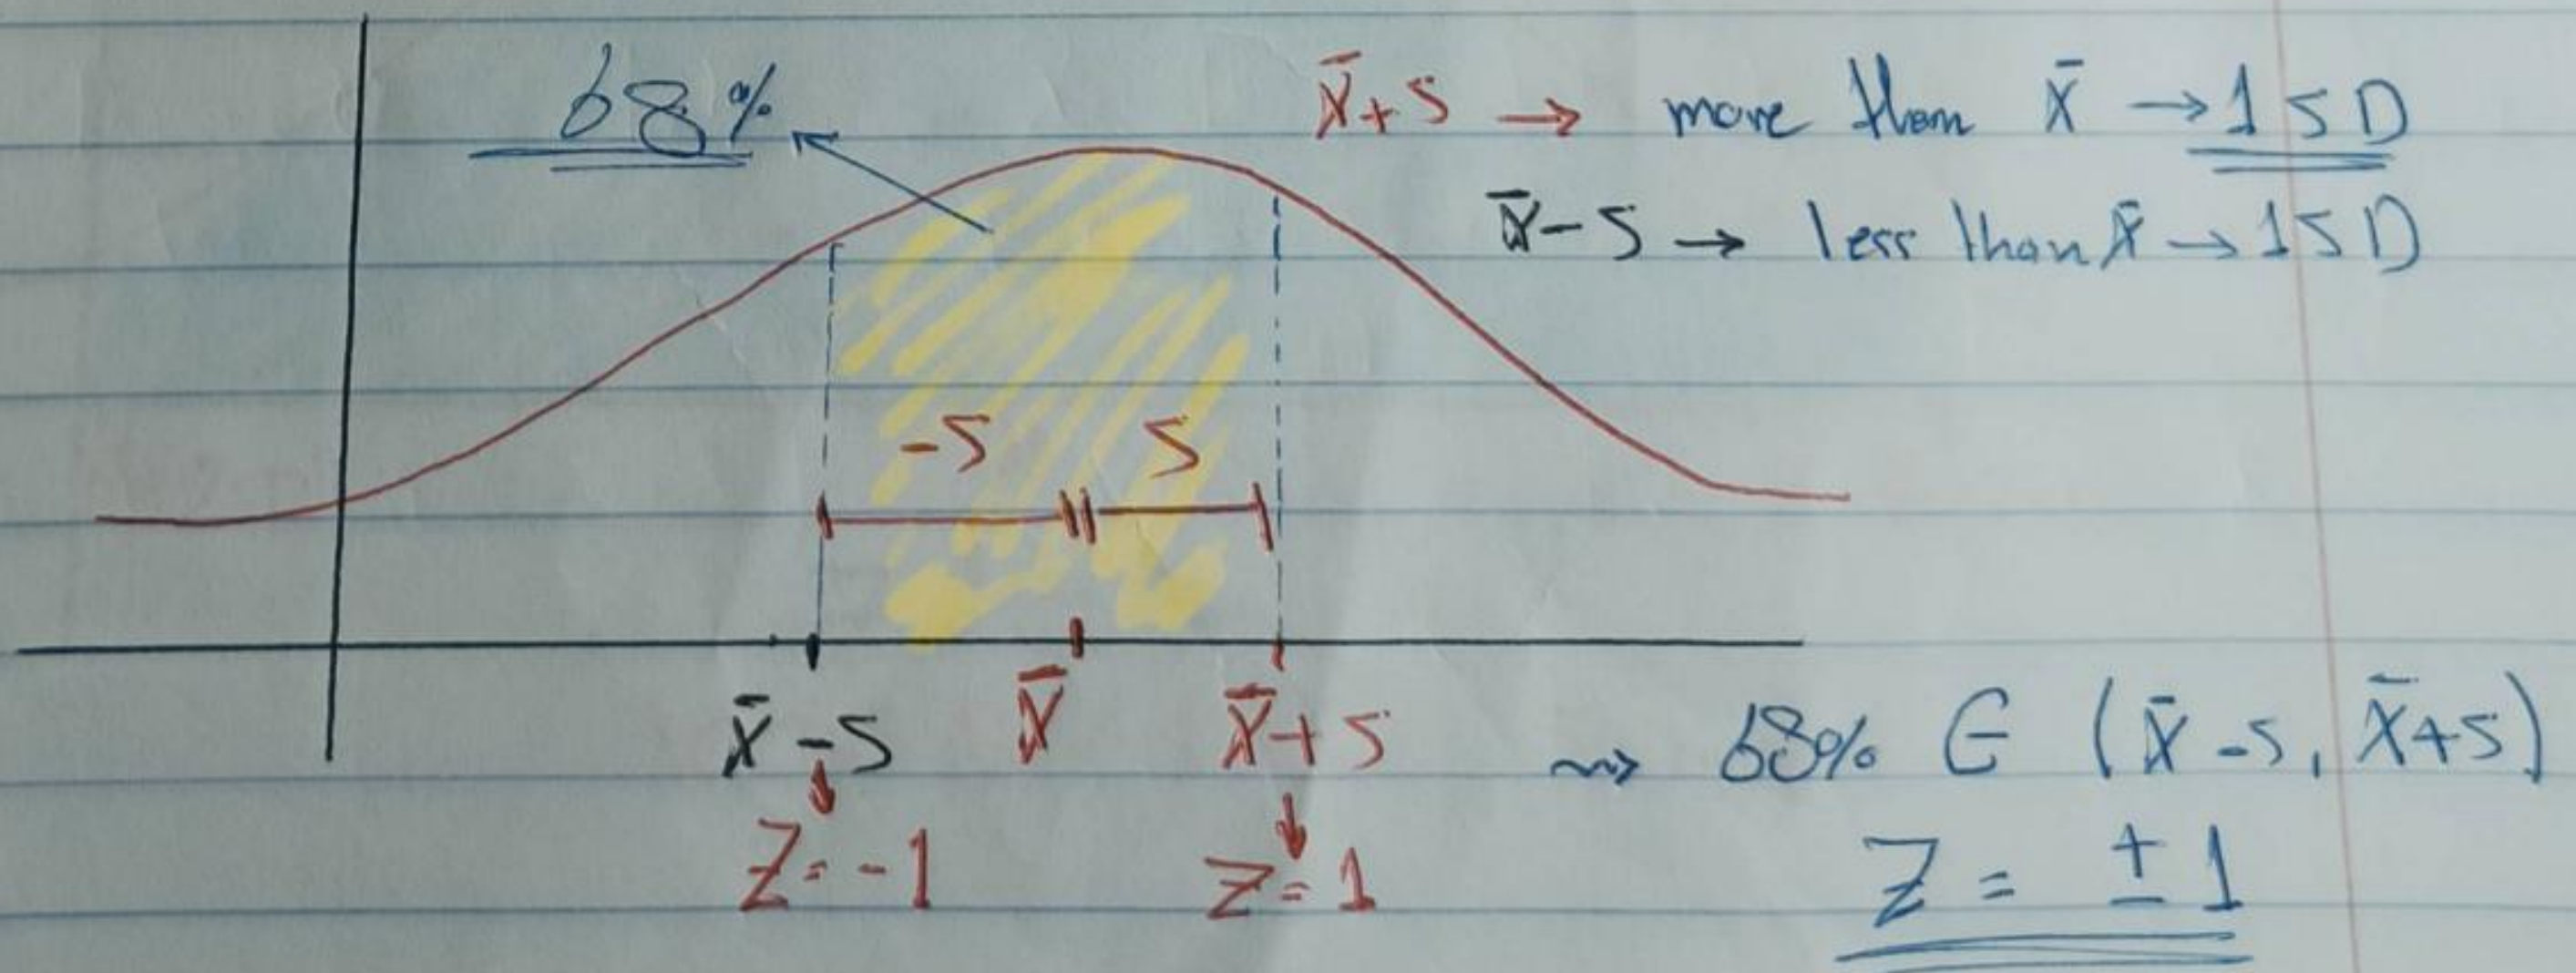 68%
X̄+S → more than X̄ → 1 SD
X̄-S → less than X̄ → 1 SD
-S S
X̄-S X̄ X̄+S ⇝ 68% ∈ (X̄-S, X̄+S)
Z=-1 Z=1 Z = ±1